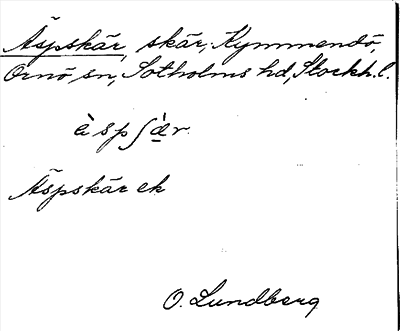 Äspskär, skär, Kymmendö,
Ornö sn, Sotholms hd, Stockh. l.
àspʃæ̀r
Äspskär ek
O. Lundberg